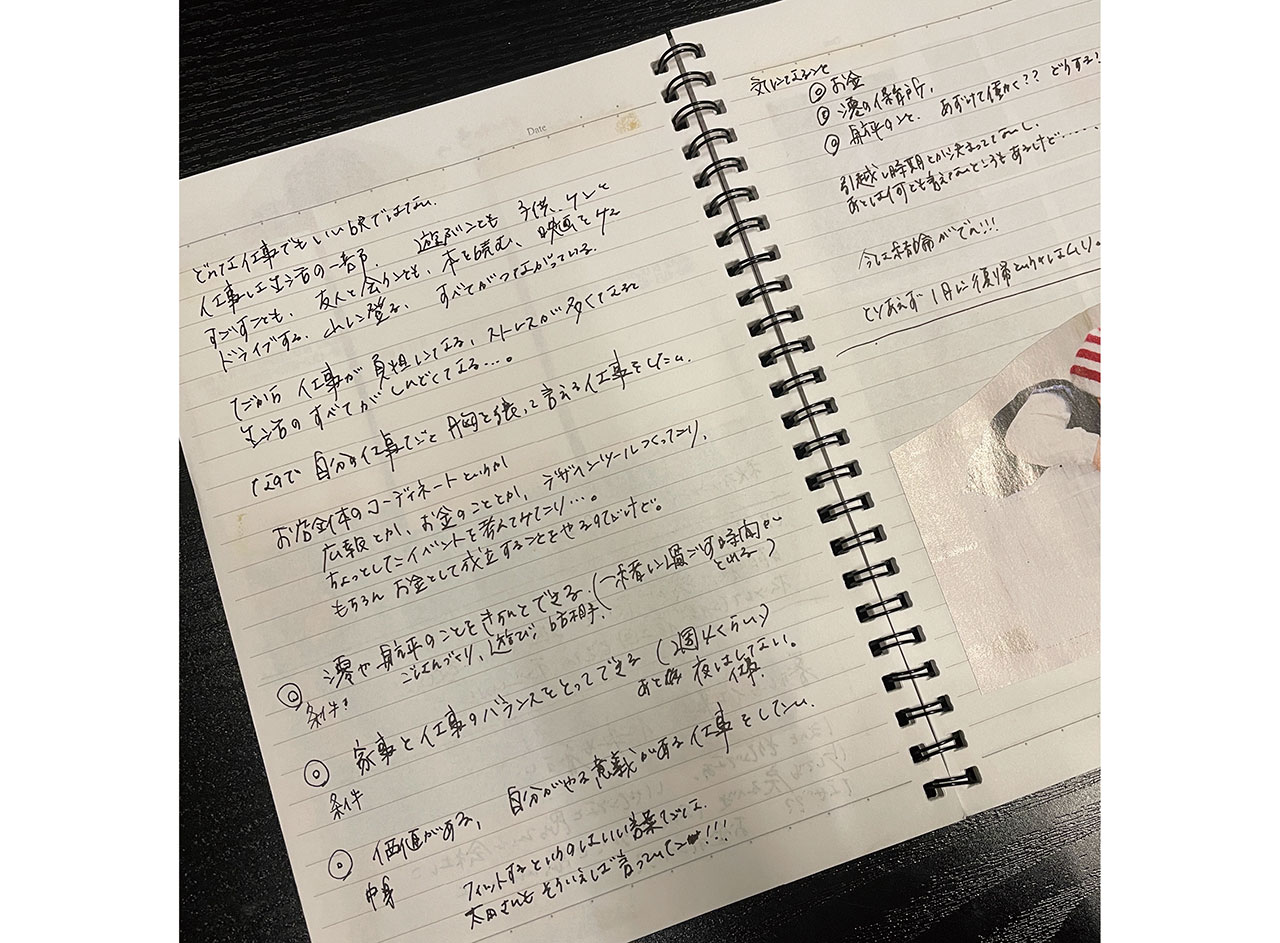 Date
どんな仕事でもいい訳ではない。
仕事は生活の一部。 遊ぶことも 子供、ケンと
すごすことも、 友人と会うことも、本を読む、映画をみる
ドライブする、山に登る、 すべてがつながっている。
だから 仕事が負担になる、ストレスが多くなると
生活のすべてがしんどくなる…。
なので 自分の仕事はこと 胸を張って言える仕事をしたい。
お店全体のコーディネートというか
広報とか、お金のこととか、デザインツールつくったり、
ちょっとしたイベントを考えてみたり…。
もちろん お金として成立することをやるのだけど。
◎ 澪や航平のことをきちんとできる。(一緒に過ごす時間が
条件 ごはんづくり、遊び、話相手。 とれる)
◎ 家事と仕事のバランスをとってできる (週4くらい)
条件 あと 夜はしない。
仕事。
◎ 価値がある、 自分がやる意義がある仕事をしたい。
中身 フィットするというのはいい言葉だしな。
太田さんも そういえば言っていた!!!
気になること
◎ お金
◎ 澪の保育所。
◎ 航平のこと。 あずけて働く?? どうする!
引越し時期とか決まってないし。
あとは何とも言えないところもあるけど……
今は結論がでん!!!
とりあえず 1月に復帰というのはムリ。